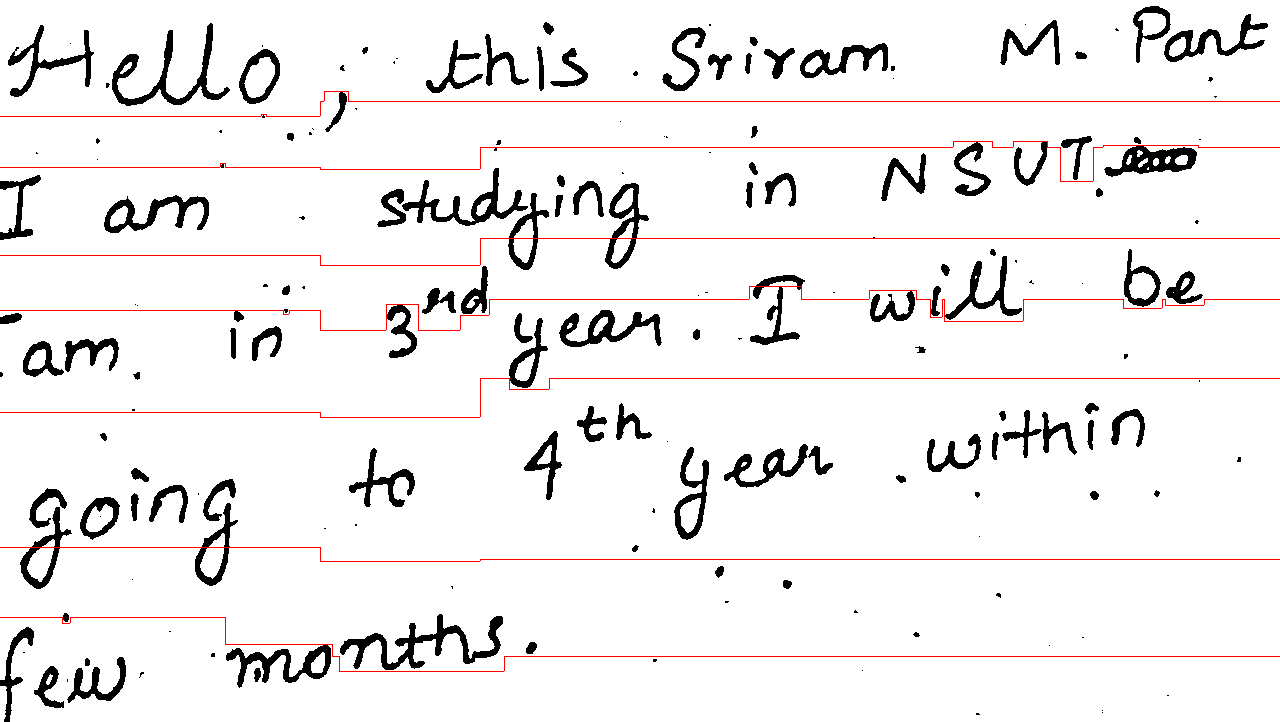 Hello, this Sriram M. Pant
I am studying in NSUT.
I am in 3rd year. I will be
going to 4th year within
few months.